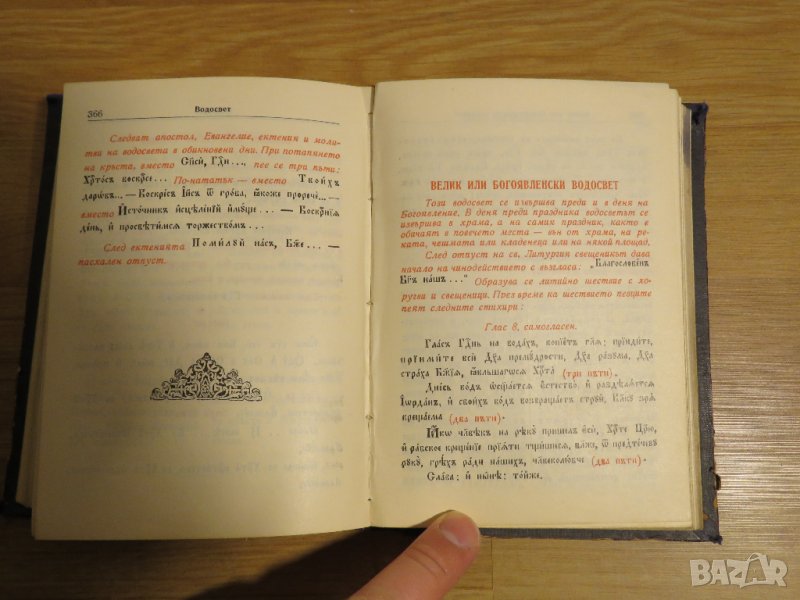 366
Водосвет
Следват апостол, Евангелие, ектения и молит-
ва на водосвета в обикновена дни. При потапянето
на кръста, вместо Сп҃си, Гд҃и... пее се три пъти:
Хрⷭ҇то́съ воскре́се... По-нататък — вместо Твои́хъ
даро́въ... — Воскре́съ І҆и҃съ ѿ гро́ба, ꙗ҆́коже проречѐ...—
вместо И҆сто́чникъ и҆сцѣле́нїй и҆мꙋ́ще... — Воскрⷭ҇нїѧ
де́нь, и҆ просвѣти́мсѧ торжество́мъ...
След ектенията Поми́лꙋй на́съ, Бж҃е... —
пасхален отпуст.
ВЕЛИК ИЛИ БОГОЯВЛЕНСКИ ВОДОСВЕТ
Този водосвет се извършва преди и в деня на
Богоявление. В деня преди празника водосветът се
извършва в храма, а на самия празник, както е
обичаят в повечето места — вън от храма, на ре-
ката, чешмата или кладенеца или на някой площад.
След отпуст на св. Литургия свещеникът дава
начало на чинодействието с възгласа: „Благослове́нъ
Бг҃ъ на́шъ..." Образува се литийно шествие с хо-
ругви и свещеници. През време на шествието певците
пеят следните стихири:
Глас 8, самогласен.
Гла́съ Гдⷭ҇нь на вода́хъ, вопїе́тъ гл҃ѧ: прїиди́те,
прїими́те всѝ Дх҃а премꙋ́дрости, Дх҃а ра́зꙋма, Дх҃а
стра́ха Бж҃їѧ, ꙗ҆́вльшагѡсѧ Хрⷭ҇та̀ (три пъти).
Дне́сь во́дъ ѡ҆сщ҃а́етсѧ є҆стество̀, и҆ раздѣлѧ́етсѧ
І҆ѻрда́нъ, и҆ свои́хъ во́дъ возвраща́етъ стрꙋи̑, Влⷣкꙋ зрѧ̀
креща́ема (два пъти).
Ꙗ҆́кѡ человѣ́къ на рѣ́кꙋ прише́лъ є҆сѝ, Хрⷭ҇тѐ Цр҃ю̀,
и҆ ра́бское креще́нїе прїѧ́ти тщи́шисѧ, бл҃же, ѿ предте́чевꙋ
рꙋкꙋ̀, грѣ̑хъ ра́ди на́шихъ, человѣколю́бче (два пъти).
Сла́ва: и҆ ны́нѣ: то́йже.
BAZAR